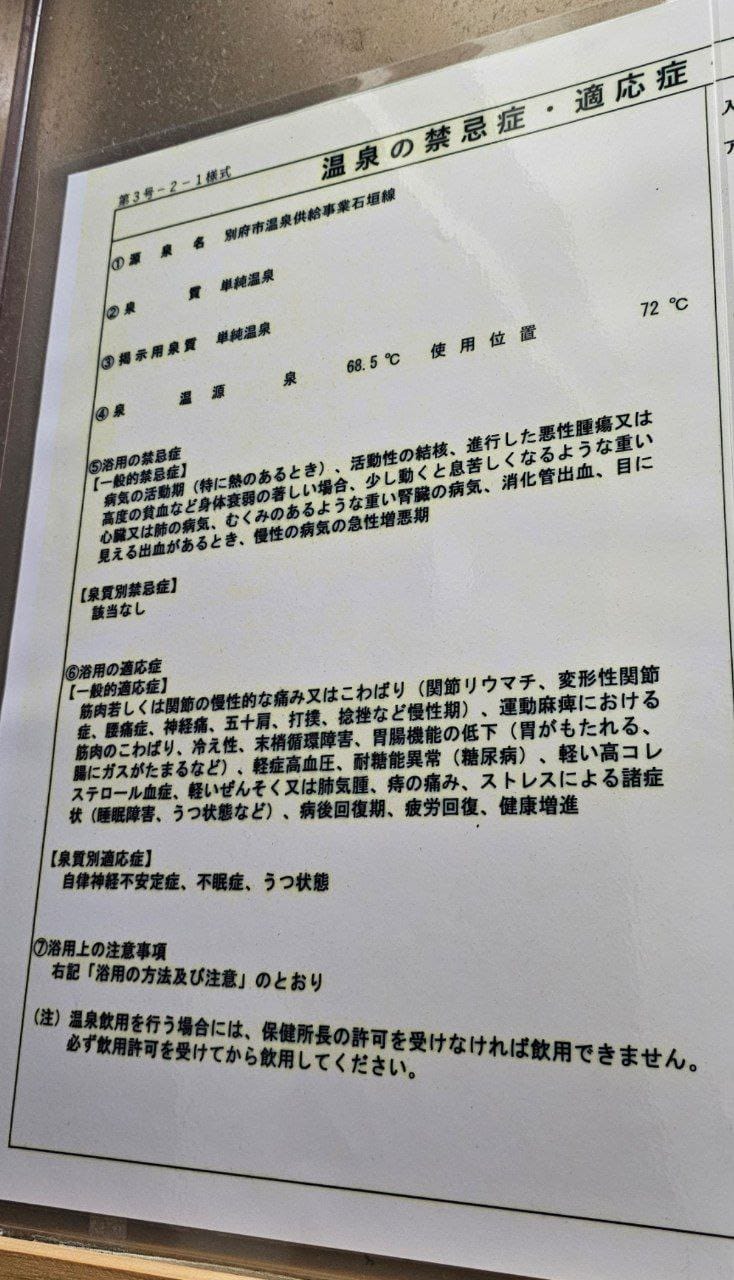 第3号-2-1様式
温泉の禁忌症・適応症
①源泉名 別府市温泉供給事業石垣線
②泉質 単純温泉
③掲示用泉質 単純温泉
④泉温 源泉 68.5℃ 使用位置 72℃
⑤浴用の禁忌症
【一般的禁忌症】
病気の活動期（特に熱のあるとき）、活動性の結核、進行した悪性腫瘍又は
高度の貧血など身体衰弱の著しい場合、少し動くと息苦しくなるような重い
心臓又は肺の病気、むくみのあるような重い腎臓の病気、消化管出血、目に
見える出血があるとき、慢性の病気の急性増悪期
【泉質別禁忌症】
該当なし
⑥浴用の適応症
【一般的適応症】
筋肉若しくは関節の慢性的な痛み又はこわばり（関節リウマチ、変形性関節
症、腰痛症、神経痛、五十肩、打撲、捻挫など慢性期）、運動麻痺における
筋肉のこわばり、冷え性、末梢循環障害、胃腸機能の低下（胃がもたれる、
腸にガスがたまるなど）、軽症高血圧、耐糖能異常（糖尿病）、軽い高コレ
ステロール血症、軽いぜんそく又は肺気腫、痔の痛み、ストレスによる諸症
状（睡眠障害、うつ状態など）、病後回復期、疲労回復、健康増進
【泉質別適応症】
自律神経不安定症、不眠症、うつ状態
⑦浴用上の注意事項
右記「浴用の方法及び注意」のとおり
（注）温泉飲用を行う場合には、保健所長の許可を受けなければ飲用できません。
必ず飲用許可を受けてから飲用してください。